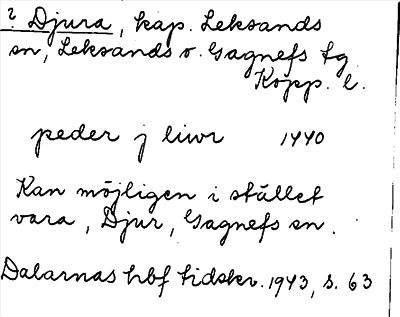 ? Djura, kap. Leksands
sn, Leksands o. Gagnefs tg
Kopp. l.
peder j liwr 1440
Kan möjligen i stället
vara, Djur, Gagnefs sn.
Dalarnas hbf tidskr. 1943, s. 63